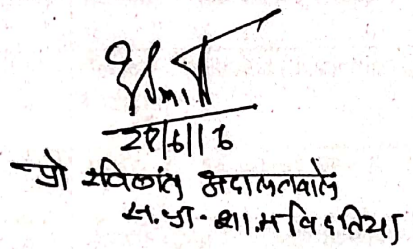 28/6/16
प्रो रविकांत अदालतवाले
स.प्रा. शा.म वि दतिया